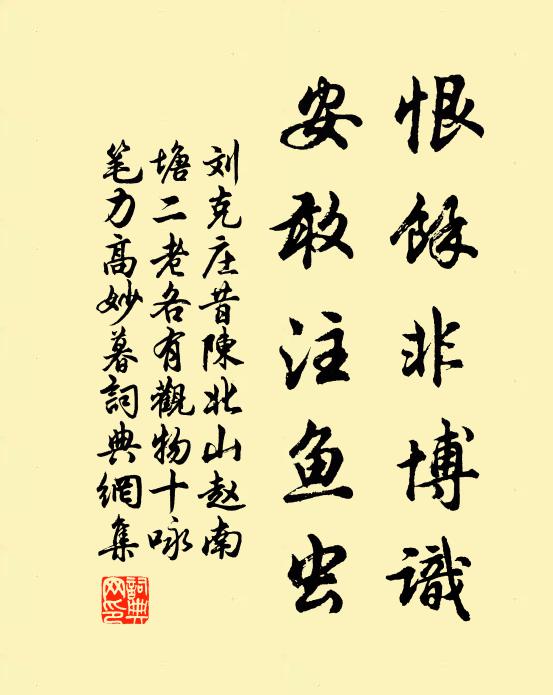 恨餘非博識
安敢注鱼虫
刘克庄昔陳北山赵南
塘二老各有觀物十咏
笔力高妙暮詞典網集
詞典网印